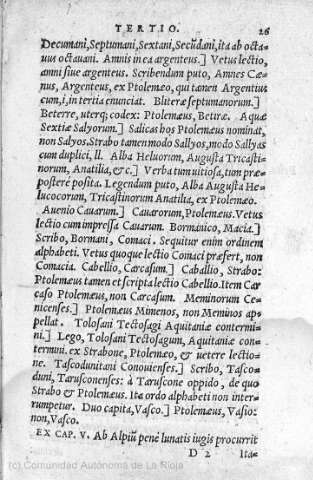 TERTIO. 26
Decumani, Septumani, Sextani, Secũdani, ita ab octa-
uus octauani. Amnis in ea argenteus.] Vetus lectio,
amni siue argenteus. Scribendum puto, Amnes Cæ-
nus, Argenteus, ex Ptolemæo, qui tamen Argentius
cum, i, in tertia enunciat. Bliteræ septumanorum.]
Beterre, uterq; codex: Ptolemæus, Betiræ. Aquæ
Sextiæ Salyorum.] Salicas hos Ptolemæus nominat,
non Salyos. Strabo tamen modo Sallyos, modo Sallyas
cum duplici, ll. Alba Heluorum, Augusta Tricasti-
norum, Anatilia, &c.] Verba tum uitiosa, tum præ-
postere posita. Legendum puto, Alba Augusta He-
lucocorum, Tricastinorum Anatilia, ex Ptolemæo.
Auenio Cauarum.] Cauarorum, Ptolemæus. Vetus
lectio cum impressa Cauarum. Bormãnico, Macia.]
Scribo, Bormani, Comaci. Sequitur enim ordinem
alphabeti. Vetus quoque lectio Comaci præfert, non
Comacia. Cabellio, Carcasum.] Caballio, Strabo:
Ptolemæus tamen et scripta lectio Cabellio. Item Car
caso Ptolemæus, non Carcasum. Meminorum Ce-
nicenses.] Ptolemæus Mimenos, non Meminos ap-
pellat. Tolosani Tectosagi Aquitaniæ contermi-
ni.] Lego, Tolosani Tectosagum, Aquitaniæ con-
termini. ex Strabone, Ptolemæo, & uetere lectio-
ne. Tascodunitani Conouienses.] Scribo, Tasco-
duni, Tarusconenses: à Taruscone oppido, de quo
Strabo & Ptolemæus. Ita ordo alphabeti non inter-
rumpetur. Duo capita, Vasco.] Ptolemæus, Vasio:
non, Vasco.
EX CAP. V. Ab Alpiũ penè lunatis iugis procurrit
D 2 Ita-
(c) Comunidad Autónoma de La Rioja